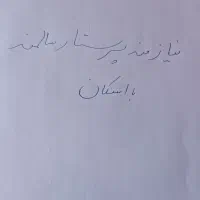 نیازمند پرستار سالمند
با اسکان